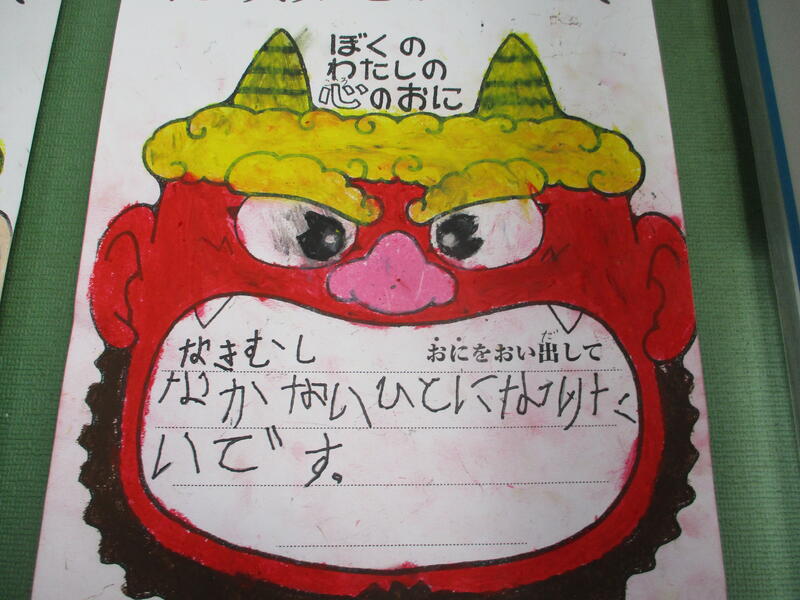 ぼくの
わたしの
心のおに
なきむし おにをおい出して
なかないひとになりた
いです。